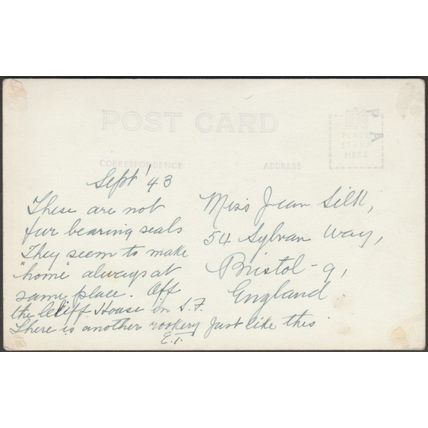 POST CARD
CORRESPONDENCE
ADDRESS
PLACE
STAMP
HERE
Sept '43
These are not
fur bearing seals
They seem to make
"home" always at
same place. Off
the Cliff House in S.F.
There is another rookery just like this
E.T.
Miss Jean Silk,
54 Sylvan Way,
Bristol-9,
England